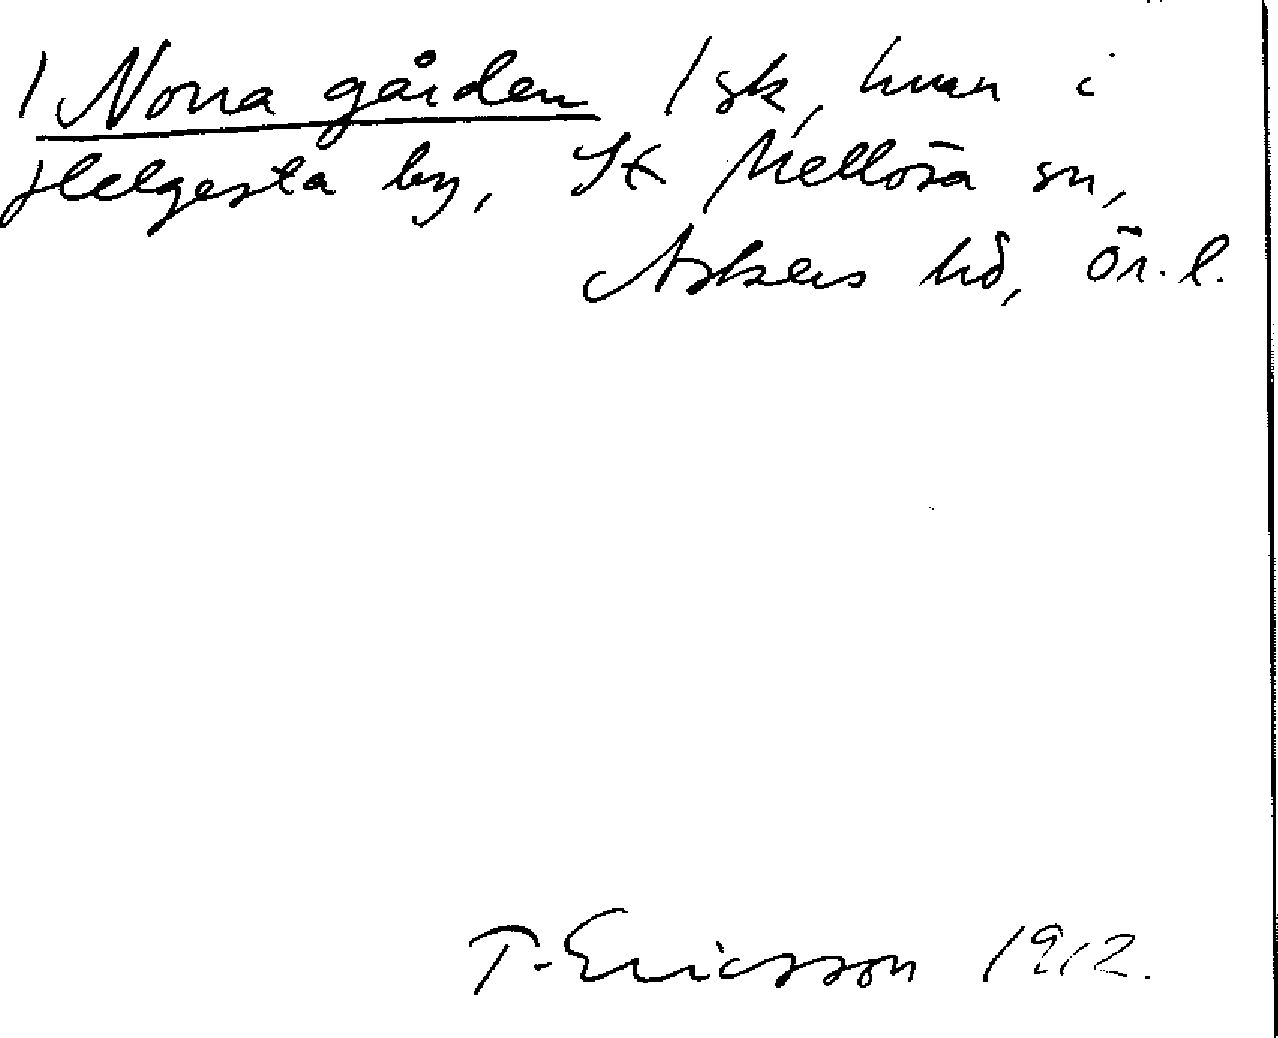 / Norra gården / sk, hmn i
Helgesta by, St Mellösa sn,
Askers hd, Ör. l.
T. Ericsson 1912.